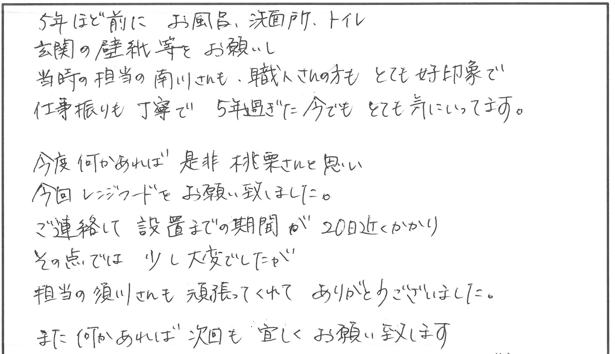 5年ほど前に お風呂、洗面所、トイレ
玄関の壁紙等を お願いし
当時の担当の南川さんも、職人さんの方も とても好印象で
仕事振りも 丁寧で 5年過ぎた今でも とても気にいってます。
今度何かあれば 是非 桃栗さんと思い
今回 レンジフードを お願い致しました。
ご連絡して 設置までの期間が 20日近くかかり
その点では 少し大変でしたが
担当の須川さんも 頑張ってくれて ありがとうございました。
また何かあれば 次回も 宜しく お願い致します